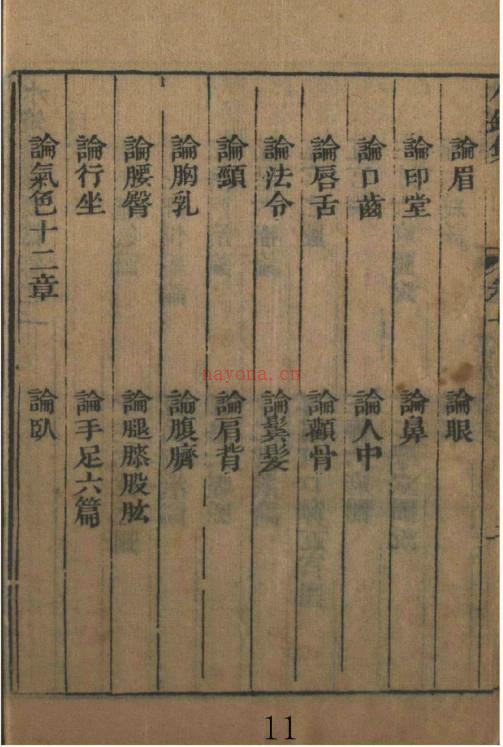 論眉 論眼
論印堂 論鼻
論口齒 論人中
論唇舌 論顴骨
論法令 論鬢髮
論頸 論肩背
論胸乳 論腹臍
論腰臀 論腿膝股肱
論行坐 論手足六篇
論氣色十二章 論臥
nayona.cn
11